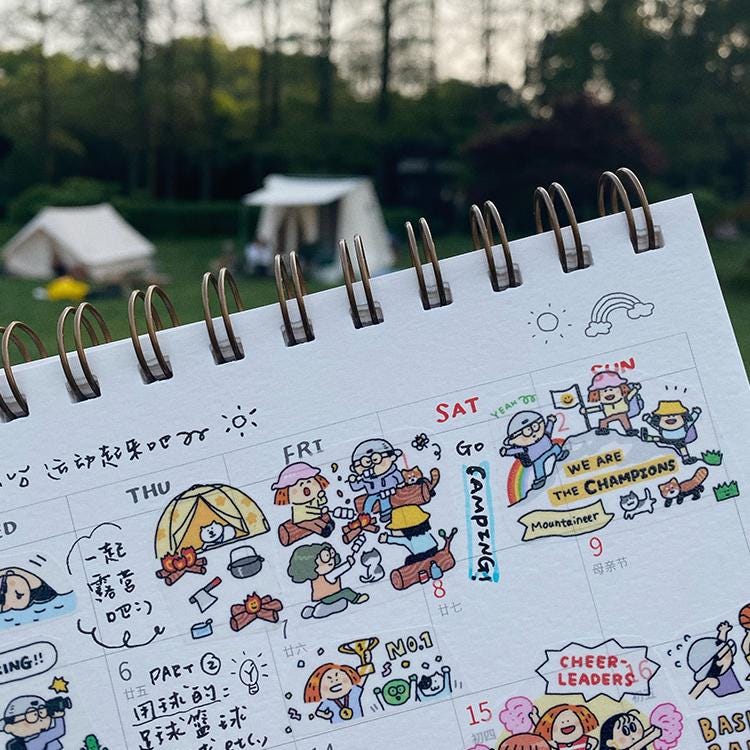 运动起来吧
THU
FRI
SAT
SUN
YEAH
一起
露营
吧:)
GO
CAMPING!
1
2
WE ARE
THE CHAMPIONS
Mountaineer
6
廿五
7
廿六
8
廿七
9
母亲节
PART ②
用球的:
足球 篮球
NO.1
CHEER-
LEADERS
15
初四
16